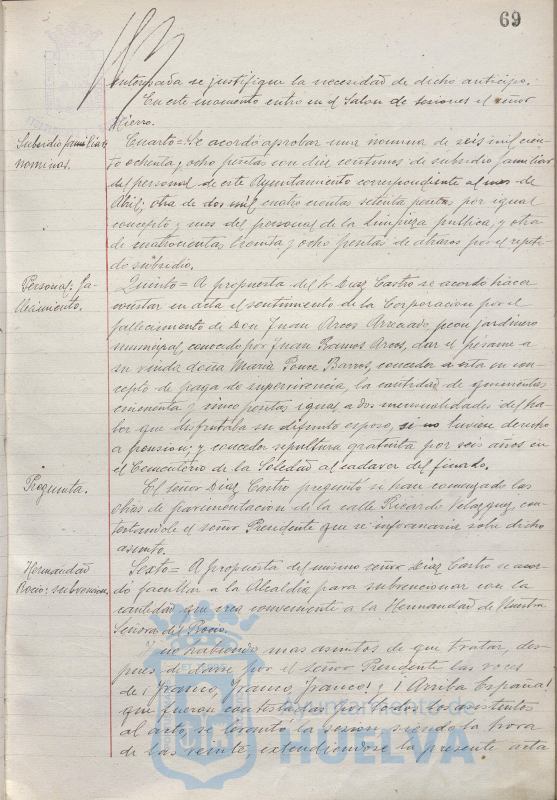 69
interesada se justifique la necesidad de dicho anticipo.
En este momento entro en el Salon de sesiones el señor
Hierro.
Subsidio familiar
nominas.
Cuarto = Se acordó aprobar una nomina de seis mil cien-
to ochenta y ocho pesetas con diez centimos de subsidio familiar
del personal de este Ayuntamiento correspondiente al mes de
Abril; otra de dos mil cuatrocientas setenta pesetas por igual
concepto y mes del personal de la Limpieza publica, y otra
de cuatrocientas treinta y ocho pesetas de atrasos por el repeti-
do subsidio.
Personal; fa-
llecimiento.
Quinto = A propuesta del Sr. Diaz Castro se acordo hacer
constar en acta el sentimiento de la Corporacion por el
fallecimiento de Don Juan Arcos peon jardinero
municipal, conocido por Juan Ramos Arcos, dar el pesame a
su viuda doña Maria Ponce Barros, conceder a esta en con-
cepto de paga de supervivencia, la cantidad de quinientas
cincuenta y cinco pesetas igual a dos mensualidades del ha-
ber que disfrutaba su difunto esposo, si no tuviere derecho
a pension; y conceder sepultura gratuita por seis años en
el Cementerio de la Soledad al cadaver del finado.
Pregunta.
El señor Diaz Castro preguntó si han comenzado las
obras de pavimentacion de la calle Ricardo Velazquez, con-
testandole el señor Presidente que se informaria sobre dicho
asunto.
Hermandad
Rocio; subvencion.
Sexto = A propuesta del mismo señor Diaz Castro se acor-
dó facultar a la Alcaldia para subvencionar con la
cantidad que crea conveniente a la Hermandad de Nuestra
Señora del Rocio.
Y no habiendo mas asuntos de que tratar, des-
pues de darse por el señor Presidente las voces
de ¡Franco, Franco, Franco! y ¡Arriba España!
que fueron contestadas por todos los asistentes
al acto, se levantó la sesion, siendo la hora
de las veinte, extendiendose la presente acta
Ayuntamiento de
HUELVA